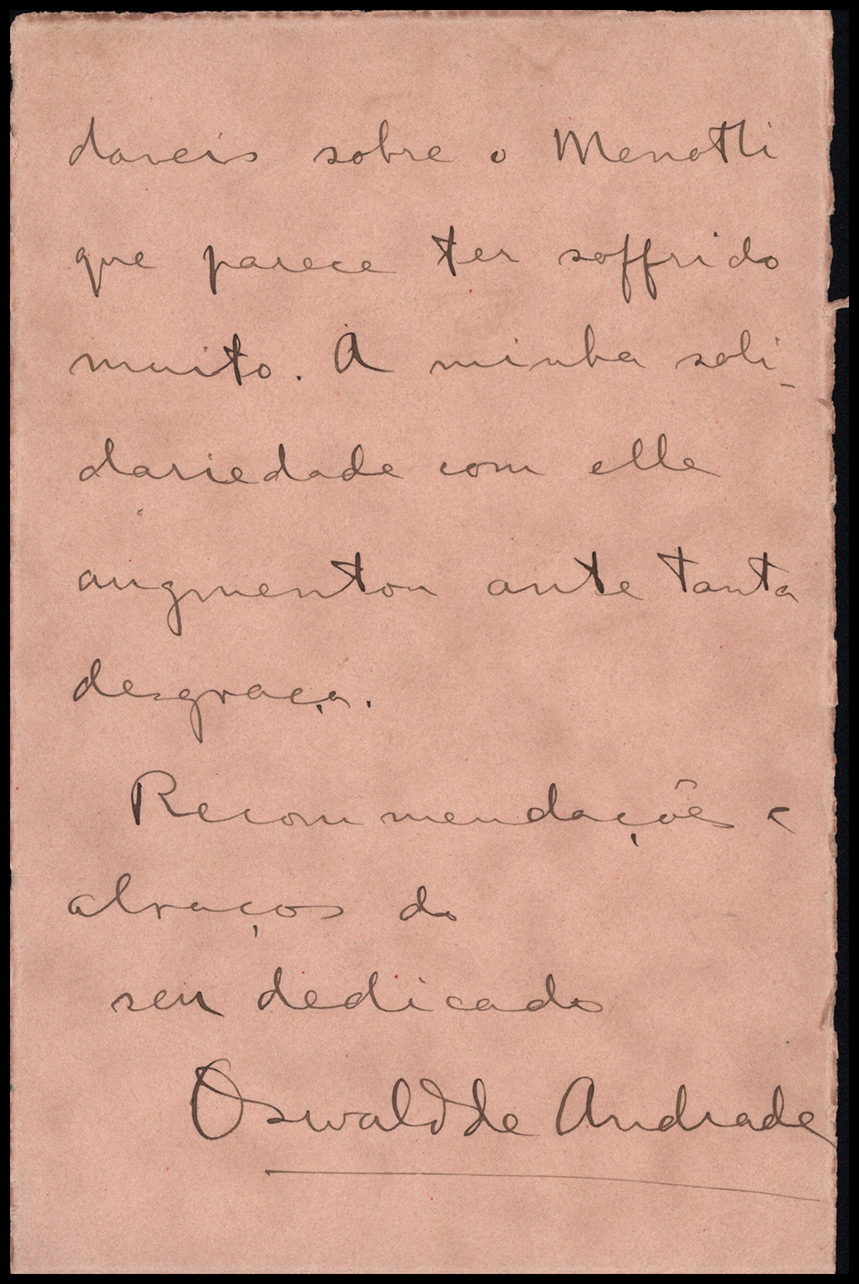 daveis sobre o Menotti
que parece ter soffrido
muito. A minha soli-
dariedade com elle
augmentou ante tanta
desgraça.
Recommendações e
abraços do
seu dedicado
Oswald de Andrade